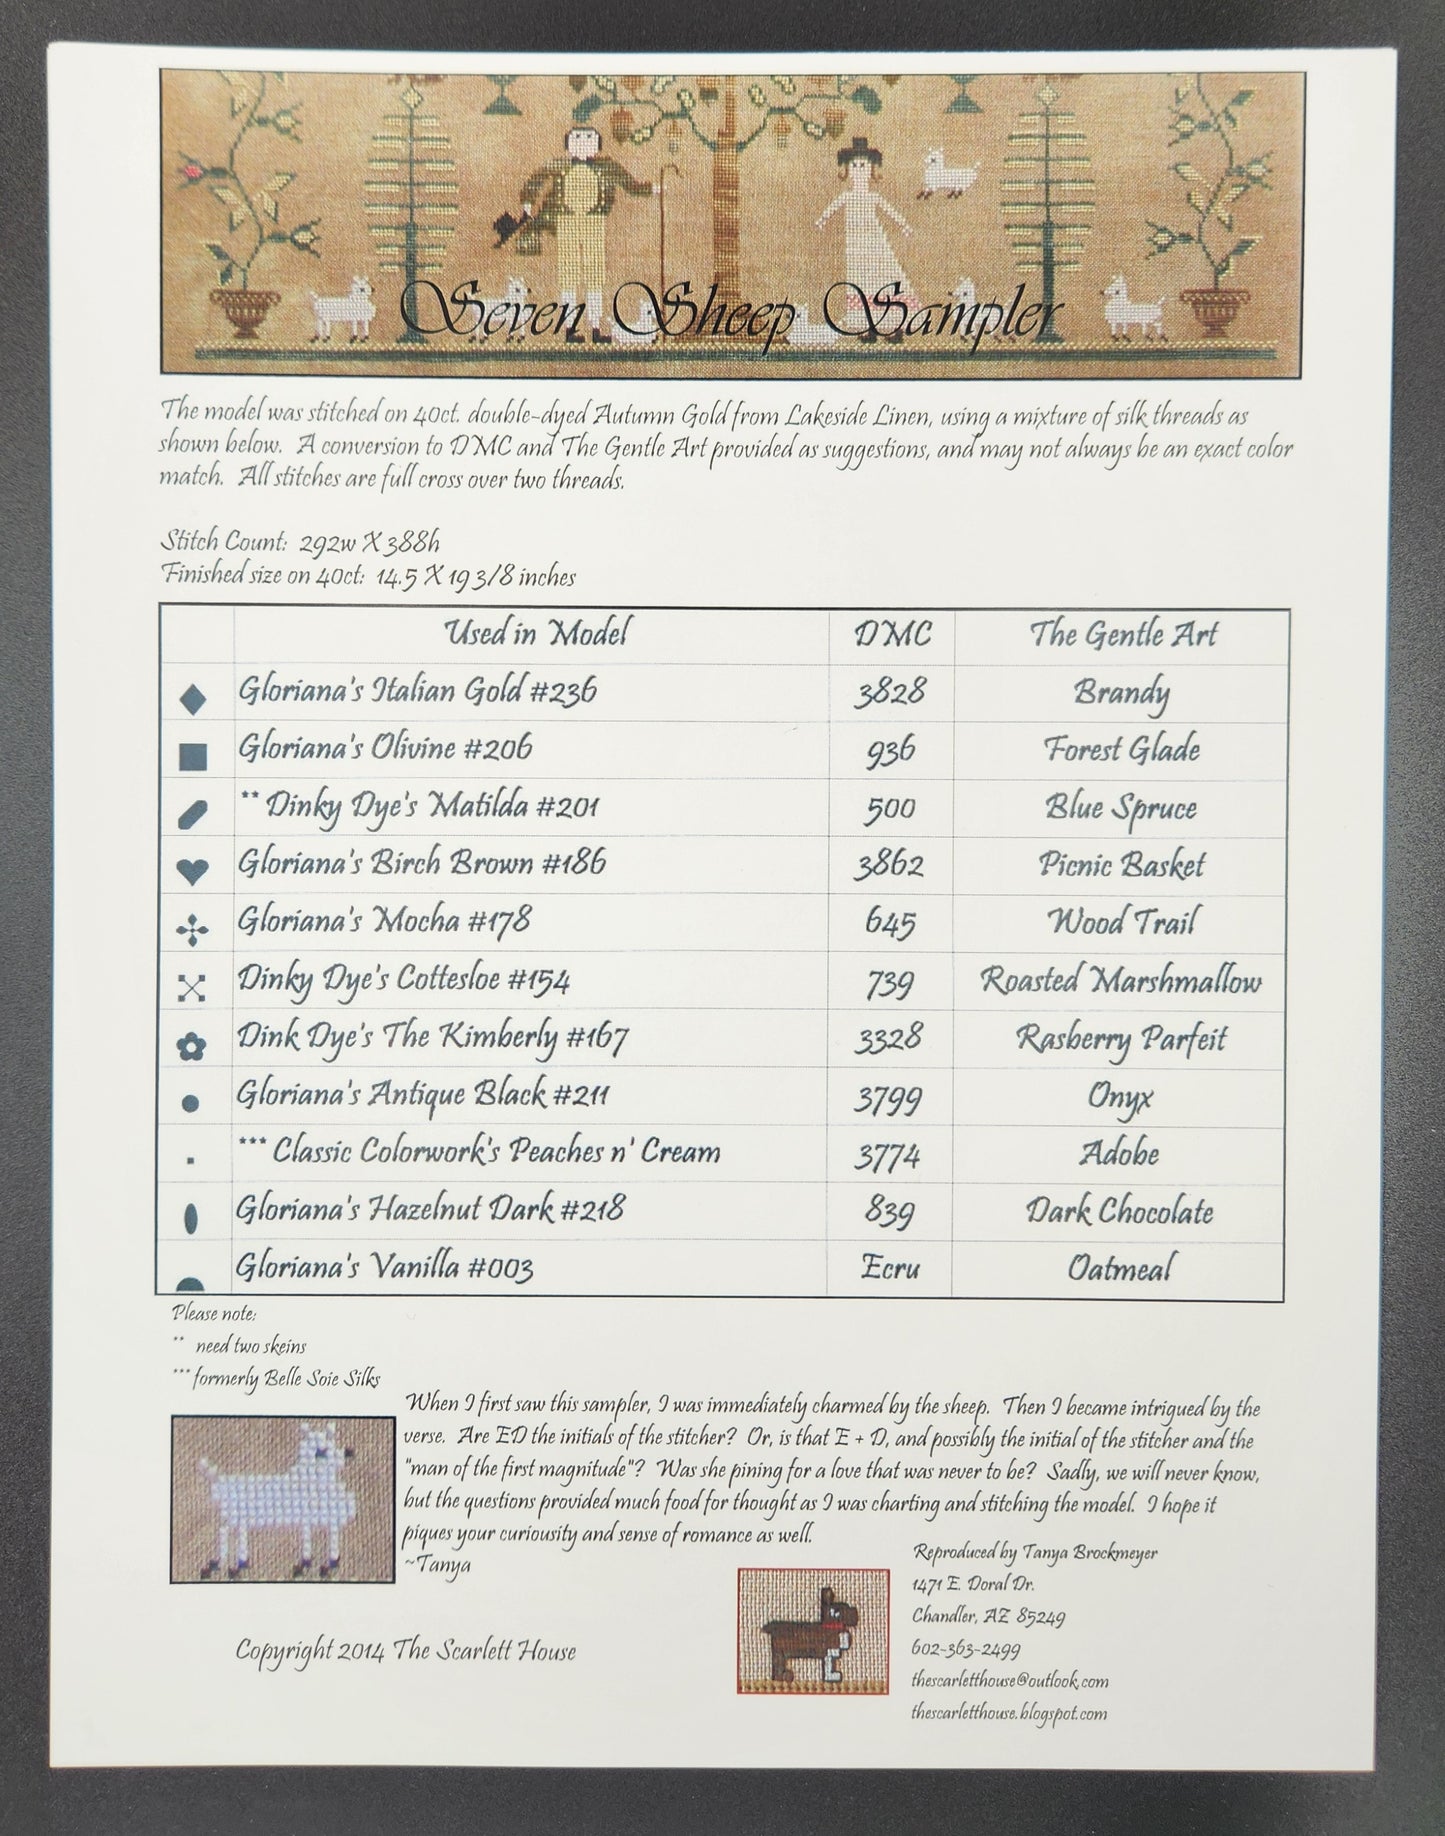 Seven Sheep Sampler
The model was stitched on 40ct. double-dyed Autumn Gold from Lakeside Linen, using a mixture of silk threads as
shown below. A conversion to DMC and The Gentle Art provided as suggestions, and may not always be an exact color
match. All stitches are full cross over two threads.
Stitch Count: 292w X 388h
Finished size on 40ct: 14.5 X 19 3/8 inches
Used in Model DMC The Gentle Art
Gloriana's Italian Gold #236 3828 Brandy
Gloriana's Olivine #206 936 Forest Glade
** Dinky Dye's Matilda #201 500 Blue Spruce
Gloriana's Birch Brown #186 3862 Picnic Basket
Gloriana's Mocha #178 645 Wood Trail
Dinky Dye's Cottesloe #154 739 Roasted Marshmallow
Dink Dye's The Kimberly #167 3328 Rasberry Parfeit
Gloriana's Antique Black #211 3799 Onyx
*** Classic Colorwork's Peaches n' Cream 3774 Adobe
Gloriana's Hazelnut Dark #218 839 Dark Chocolate
Gloriana's Vanilla #003 Ecru Oatmeal
Please note:
** need two skeins
*** formerly Belle Soie Silks
When I first saw this sampler, I was immediately charmed by the sheep. Then I became intrigued by the
verse. Are ED the initials of the stitcher? Or, is that E + D, and possibly the initial of the stitcher and the
"man of the first magnitude"? Was she pining for a love that was never to be? Sadly, we will never know,
but the questions provided much food for thought as I was charting and stitching the model. I hope it
piques your curiousity and sense of romance as well.
~Tanya
Reproduced by Tanya Brockmeyer
1471 E. Doral Dr.
Chandler, AZ 85249
602-363-2499
thescarletthouse@outlook.com
thescarletthouse.blogspot.com
Copyright 2014 The Scarlett House